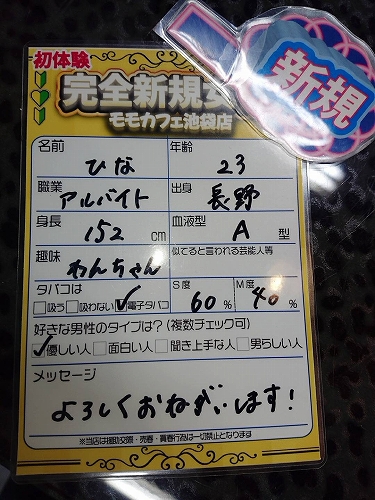 初体験
新規
完全新規
モモカフェ池袋店
名前 ひな 年齢 23
職業 アルバイト 出身 長野
身長 152 cm 血液型 A 型
趣味 わんちゃん 似てると言われる芸能人等
タバコは □吸う □吸わない ☑電子タバコ S度 60 % M度 40 %
好きな男性のタイプは?(複数チェック可)
☑優しい人 □面白い人 □聞き上手な人 □男らしい人
メッセージ
よろしくおねがいします!
※当店は援助交際・売春・買春行為は一切禁止となります